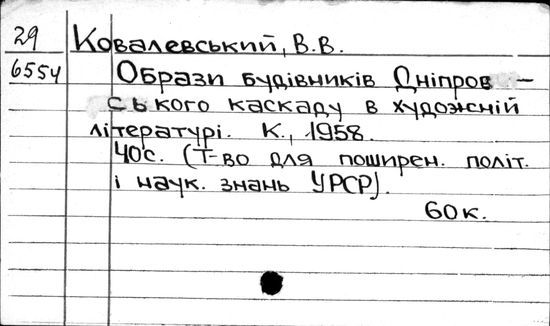 29 Ковалевський, В.В.
6554 Образи будівників Дніпров-
ського каскаду в художній
літературі. К., 1958.
40с. (Т-во для поширен. політ.
і наук. знань УРСР).
60к.